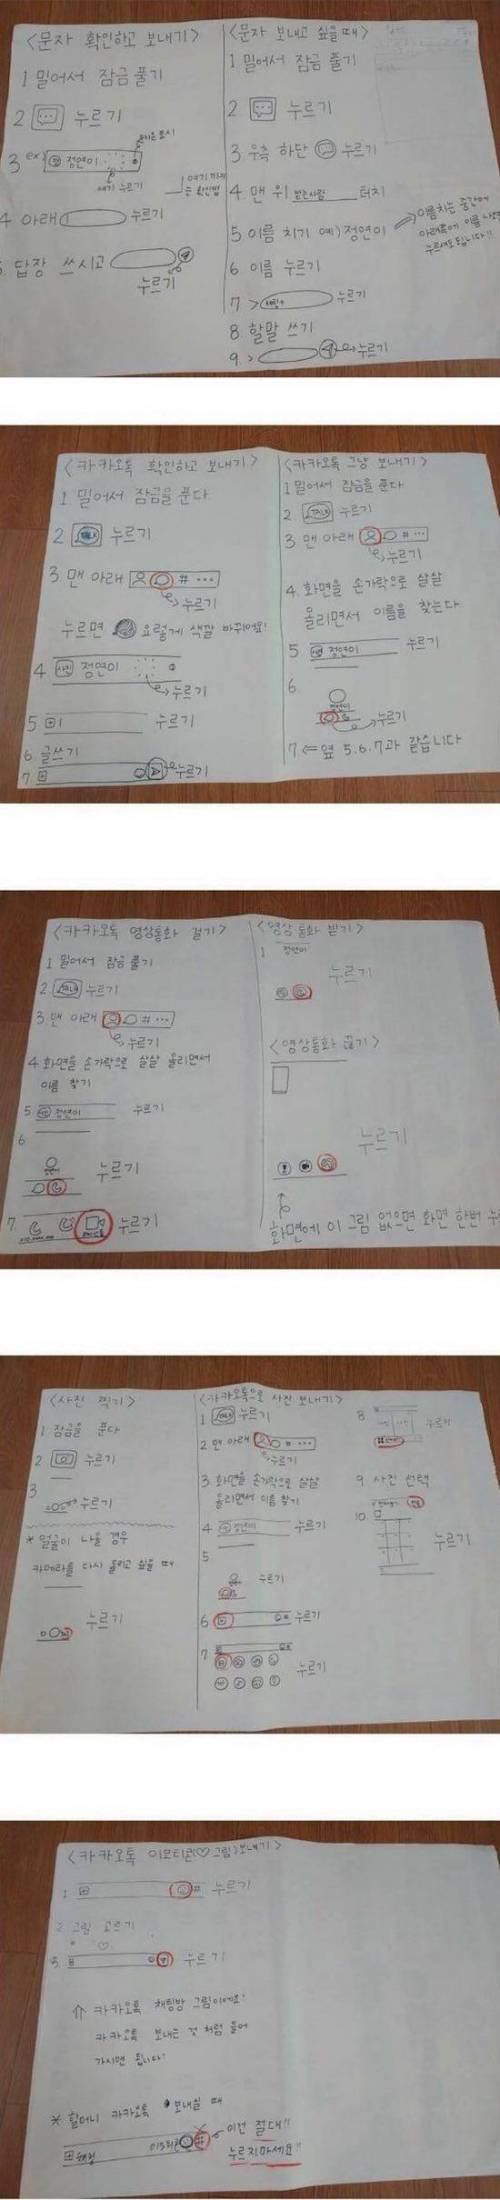 <문자 확인하고 보내기>
1 밀어서 잠금 풀기
2 누르기
3 ex) 정연이
여기 누르기
4 아래 누르기
5 답장 쓰시고
누르기
<문자 보내고 싶을때>
1 밀어서 잠금 풀기
2 누르기
3 우측 하단 누르기
4. 맨 위 받는사람 터치
5 이름 치기 예) 정연이
이름치는 중간에
아래쪽에 이름
누르셔도됩니다!!
6 이름 누르기
7 > 누르기
8. 할말 쓰기
9. > 누르기
<카카오톡 확인하고 보내기>
1 밀어서 잠금을 푼다
2 TALK 누르기
3 맨 아래 # ...
누르기
누르면 요렇게 색깔 바뀌어요!
4 사진 정연이
누르기
5 + 누르기
6 글쓰기
7 + 누르기
<카카오톡 그냥 보내기>
1 밀어서 잠금을 푼다
2 TALK 누르기
3 맨 아래 # ...
누르기
4. 화면을 손가락으로 살살
올리면서 이름을 찾는다
5 사진 정연이 누르기
6
정연이
누르기
7 ⇐ 옆 5.6.7과 같습니다
<카카오톡 영상통화 걸기>
1 밀어서 잠금 풀기
2. TALK 누르기
3. 맨 아래 # ...
누르기
4 화면을 손가락으로 살살 올리면서
이름 찾기
5 정연이 누르기
6
누르기
7. 누르기
<영상통화 받기>
1 정연이
누르기
<영상통화 끊기>
누르기
화면에 이 그림 없으면 화면 한번
<사진 찍기>
1 잠금을 푼다
2 누르기
3
누르기
* 얼굴이 나올 경우
카메라를 다시 돌리고 싶을 때
누르기
<카카오톡으로 사진 보내기>
1 TALK 누르기
2 맨 아래 # ...
누르기
3 화면을 손가락으로 살살
올리면서 이름 찾기
4 정연이 누르기
5
누르기
6 + 누르기
7
누르기
8 누르기
9 사진 선택
10 누르기
<카카오톡 이모티콘♡그림> 보내기>
1 + # 누르기
2 그림 고르기
3 누르기
⇧ 카카오톡 채팅방 그림이에요!
카카오톡 보내는 것 처럼 들어
가시면 됩니다!
* 할머니 카카오톡 보내실 때
+ #
이건 절대!!
누르지마세요!!